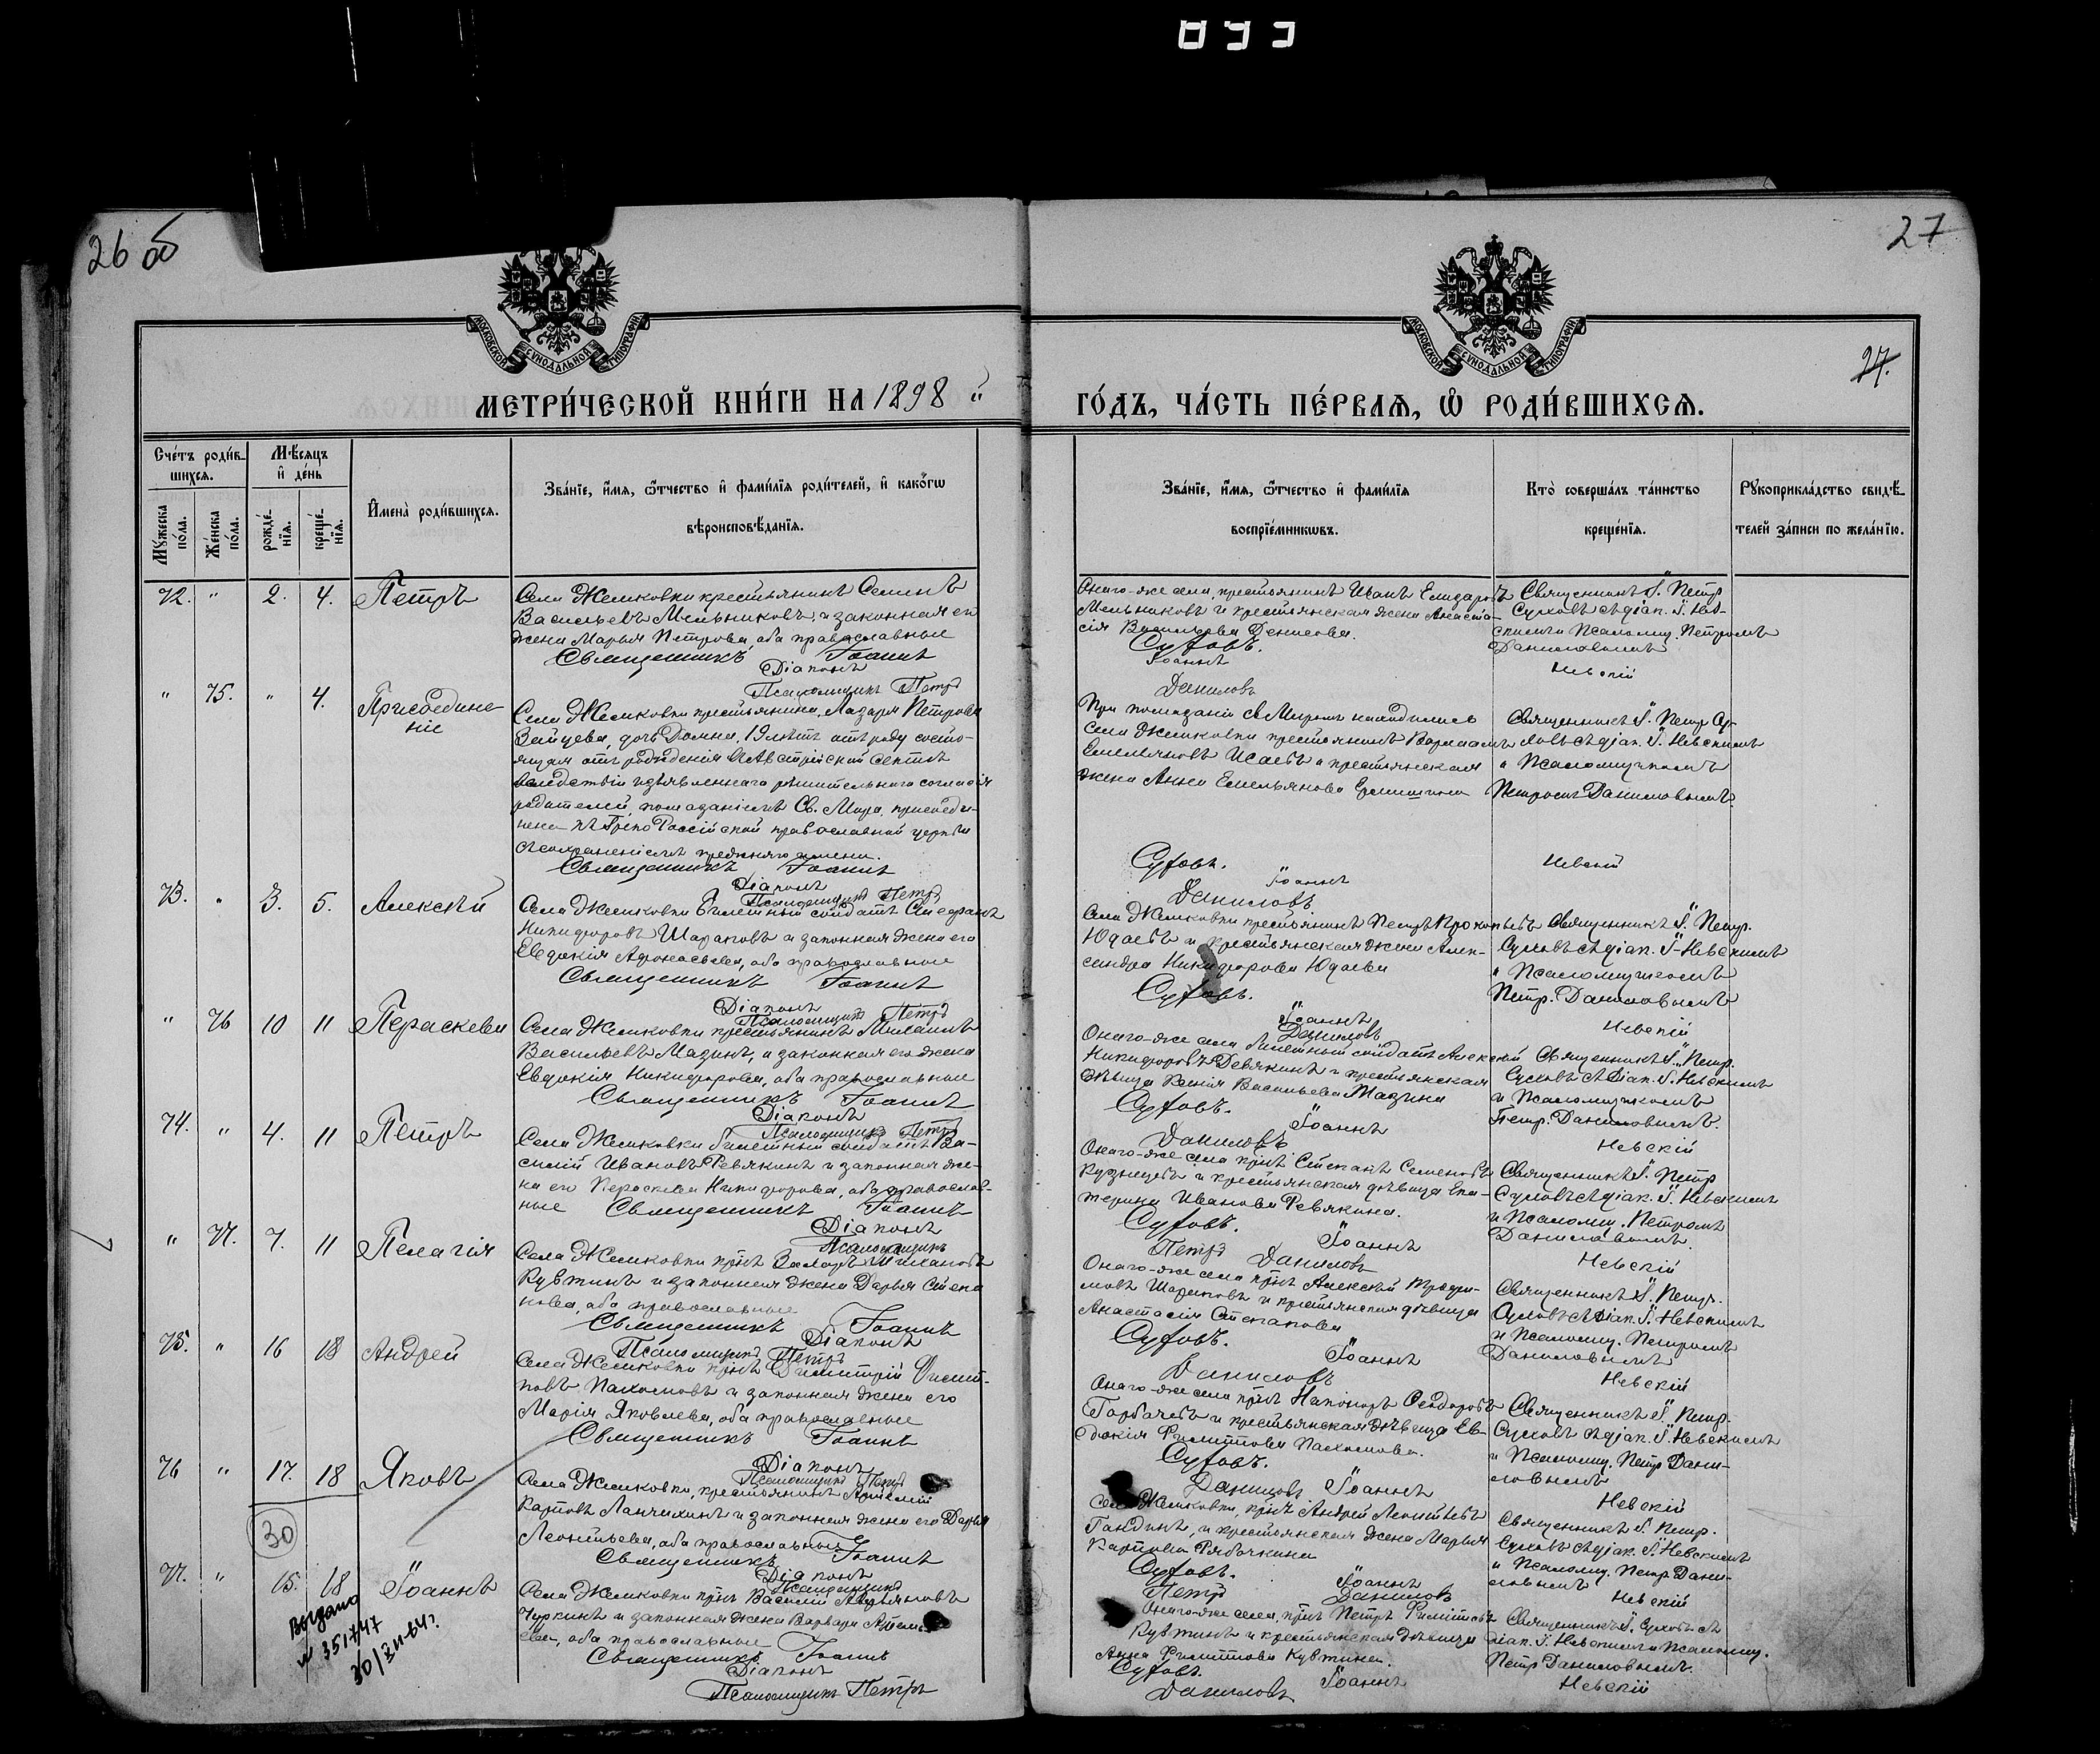 893
26 об
27
27.
МОСКОВСКОЙ СѴНОДАЛЬНОЙ ТИПОГРАФІИ
МОСКОВСКОЙ СѴНОДАЛЬНОЙ ТИПОГРАФІИ
МЕТРИ́ЧЕСКОЙ КНИ́ГИ НА 1898 й
ГО́ДЪ, ЧА́СТЬ ПЕ́РВАѦ, Ѡ҆ РОДИ́ВШИХСѦ.
Сче́тъ роди́в-
шихсѧ.
Мѣ́сяцъ
и҆ де́нь
Мꙋ́жеска по́ла.
Же́нска по́ла.
рожде́-
нїѧ.
креще́-
нїѧ.
И҆мена̀ роди́вшихсѧ.
Зва́нїе, и҆́мѧ, ѻ҆́тчество и҆ фами́лїѧ роди́телей, и҆ како́гѡ
вѣроисповѣ́данїѧ.
Зва́нїе, и҆́мѧ, ѻ҆́тчество и҆ фами́лїѧ
воспрїе́мникѡвъ.
Кто̀ соверша́лъ та́инство
креще́нїѧ.
Рꙋкоприкла́дство свидѣ́-
телей за́писи по жела́нїю.
72. " 2. 4. Петръ
Села Жемковки крестьянинъ Семенъ
Васильевъ Мельниковъ, и законная его
жена Марья Петрова, оба православные
Священникъ Іоаннъ
Діаконъ
Псаломщикъ Петръ
Онаго-же села, крестьянинъ Иванъ Елизаровъ
Мельниковъ и крестьянская жена Анаста-
сія Васильева Денисова.
Суховъ.
Іоаннъ
Даниловъ
Священникъ І. Петр.
Суховъ съ діак. І. Нев-
скимъ и Псаломщ. Петромъ
Даниловымъ
Невскій
" 75. " 4. Присоедине-
ніе
Села Жемковки крестьянина, Лазаря Петрова
Зайцева, дочь Домна, 19 лѣтъ отъ роду состо-
ящая отъ рожденія въ Австрійской сектѣ
вслѣдствіи изъявленнаго рѣшительнаго согласія
родителей, помазаніемъ Св. Мѵра, присоеди-
нена къ Греко Россійской православной церкви
съ сохраненіемъ прежняго имени.
Священникъ Іоаннъ
Діаконъ
Псаломщикъ Петръ
При помазаніи Св. Миромъ находились
села Жемковки крестьянинъ
Емельяновъ Исаевъ и крестьянская
жена Анна Емельянова
Суховъ.
Іоаннъ
Даниловъ
Священникъ І. Петр. Су-
ховъ съ діак. І. Невскимъ
и Псаломщикомъ
Петромъ Даниловымъ.
Невскій
73. " 3. 5. Алексѣй
Села Жемковки билетный солдатъ Стефанъ
Никифоровъ Шараповъ и законная жена его
Евдокія Афонасьева, оба православные
Священникъ Іоаннъ
Діаконъ
Псаломщикъ Петръ
Села Жемковки крестьянинъ Петръ Прокопьевъ
Юдаевъ и крестьянская жена Алек-
сандра Никифорова Юдаева
Суховъ.
Іоаннъ
Даниловъ
Священникъ І. Петр.
Суховъ съ діак. І. Невскимъ
и Псаломщикомъ
Петр. Даниловымъ
Невскій
" 76 10 11 Пераскева
Села Жемковки крестьянинъ Михаилъ
Васильевъ Мазинъ, и законная его жена
Евдокія Никифорова, оба православные
Священникъ Іоаннъ
Діаконъ
Псаломщикъ Петръ
Онаго-же села билетный солдатъ Алексѣй
Никифоровъ Девякинъ и крестьянская
дѣвица Ксенія Васильева Мазина
Суховъ.
Іоаннъ
Даниловъ
Священникъ І. Петр.
Суховъ съ Діак. І. Невскимъ
и Псаломщикомъ
Петр. Даниловымъ.
Невскій
74. " 4. 11 Петръ
Села Жемковки билетный солдатъ Ва-
силій Ивановъ Ревякинъ и законная же-
на его Пераскева Никифорова, оба православ-
ные Священникъ Іоаннъ
Діаконъ
Псаломщикъ
Онаго-же села крнъ Степанъ Семеновъ
Кузнецовъ и крестьянская дѣвица Ека-
терина Иванова Ревякина.
Суховъ.
Іоаннъ
Петръ Даниловъ
Священникъ І. Петр.
Суховъ съ діак. І. Невскимъ
и Псаломщ. Петромъ
Даниловымъ.
Невскій
" 77. 7. 11 Пелагія
Села Жемковки крнъ Захаръ Михаиловъ
Кувтинъ и законная жена Дарья Степа
нова, оба православные
Священникъ Іоаннъ
Діаконъ
Псаломщикъ Петръ
Онаго-же села крнъ Алексѣй Трофи-
мовъ Шараповъ и крестьянская дѣвица
Анастасія Степанова
Суховъ.
Іоаннъ
Даниловъ
Священникъ І. Петр.
Суховъ съ Діак. І. Невскимъ
и Псаломщ. Петромъ
Даниловымъ
Невскій
75. " 16 18 Андрей
Села Жемковки крнъ Димитрій Филип-
повъ Пахомовъ и законная жена его
Марія Яковлева, оба православные
Священникъ Іоаннъ
Діаконъ
Псаломщикъ Петръ
Онаго-же села крнъ Никоноръ Феодоровъ
Горбачевъ и крестьянская дѣвица Ев-
докія Филиппова Пахомова.
Суховъ.
Даниловъ Іоаннъ
Священникъ І. Петр.
Суховъ съ діак. І. Невскимъ
и Псаломщ. Петр Дани-
ловымъ
Невскій
76 " 17. 18 Яковъ
Села Жемковки, крестьянинъ Артемій
Карповъ Ланчихинъ и законная жена его Дарья
Леонтьева, оба православные
Священникъ Іоаннъ
Діаконъ
Псаломщикъ
Села Жемковки, крнъ Андрей Леонтьевъ
Гандинъ, и крестьянская жена Марья
Карпова Рябочкина
Суховъ.
Іоаннъ
Петръ Даниловъ
Священникъ І. Петр.
Суховъ съ діак. І. Невскимъ
и Псаломщ. Петр. Дани-
ловымъ
Невскій
30
77. " 15. 18 Іоаннъ
Села Жемковки крнъ Василій
Чуркинъ и законная жена Варвара
ева, оба православные
Священникъ Іоаннъ
Діаконъ
Псаломщикъ Петръ
Онаго-же села, крнъ Петръ Филиповъ
Кувтинъ и крестьянская дѣвица
Анна Филиппова Кувтина.
Суховъ.
Іоаннъ
Даниловъ
Священникъ І. Суховъ съ
діак. І. Невскимъ и Псаломщ.
Петр Даниловымъ.
Невскій
Выдано
№ 351747
30/XII-64г